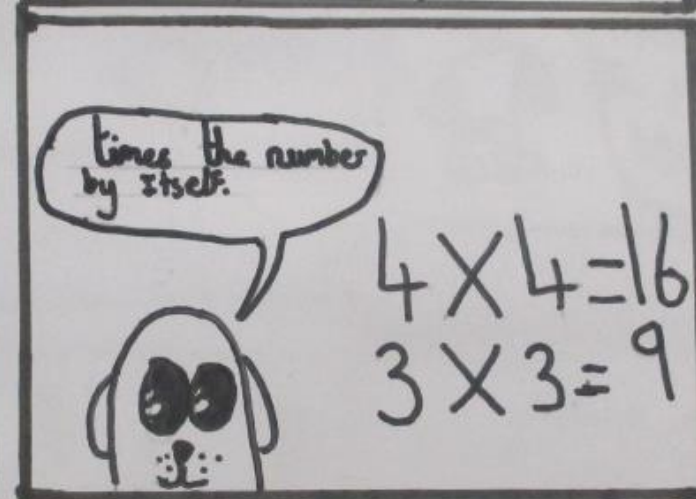 times the number
by Itself.
4 X 4 = 16
3 X 3 = 9